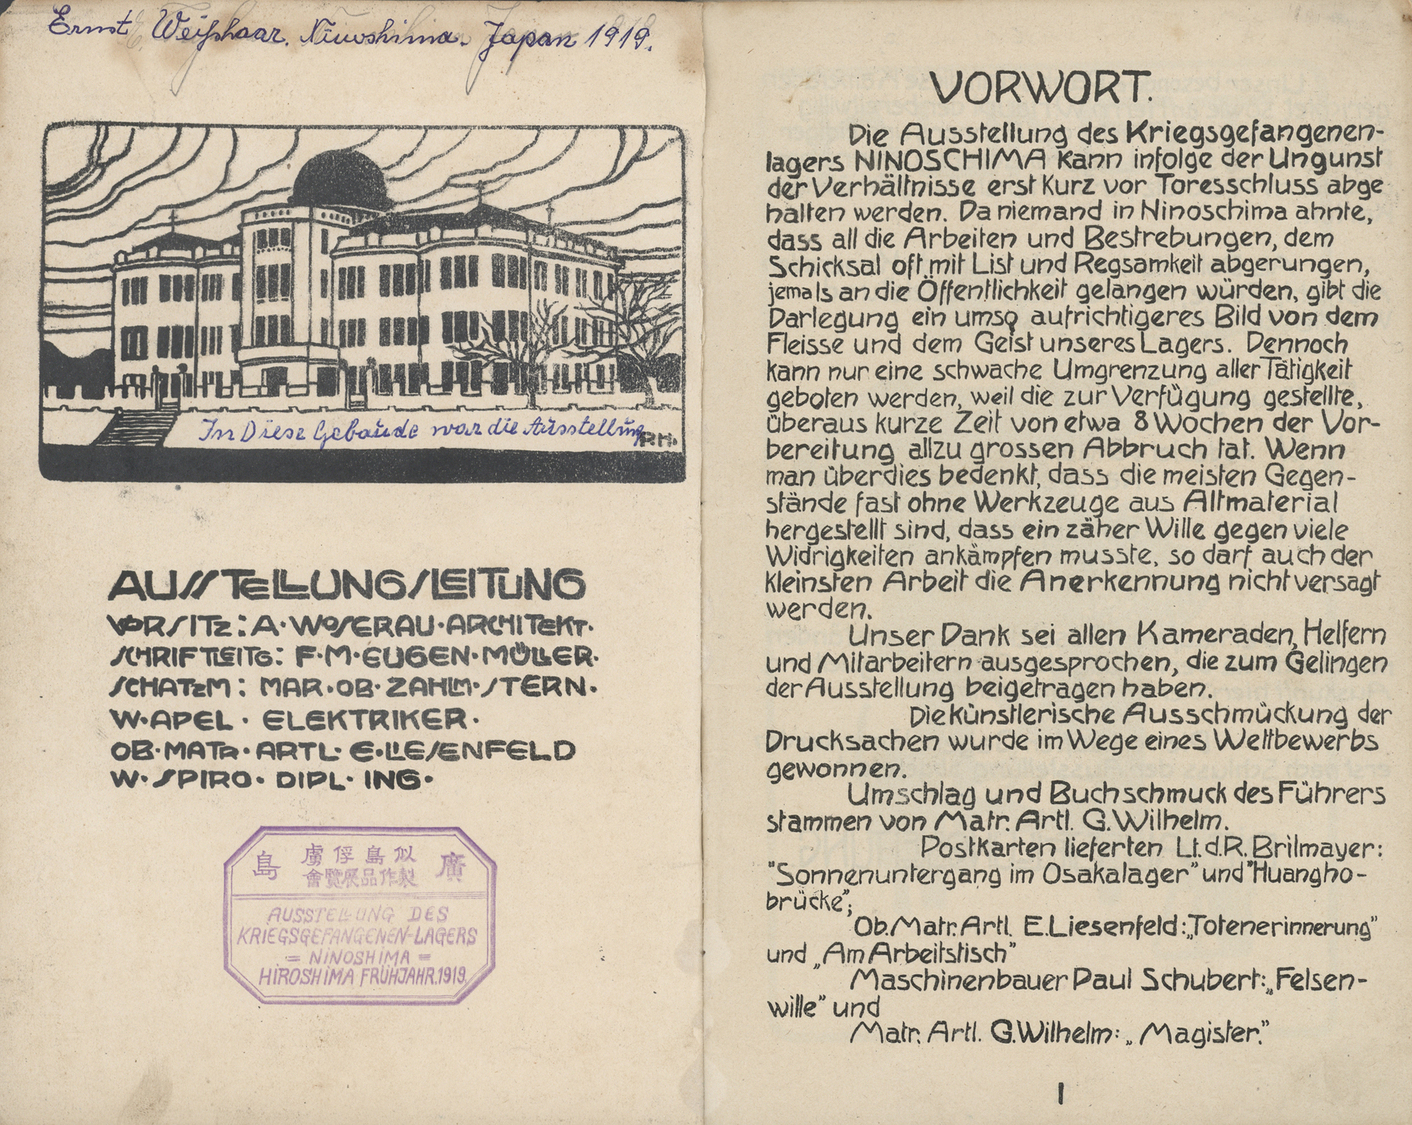 Ernst Weißhaar. Ninoshima. Japan 1919.
In Diese Gebaude war die Ausstellung
R.H.
AUSSTELLUNGSLEITUNG
VORSITZ: A·WOSERAU·ARCHITEKT·
SCHRIFTLEITG: F·M·EUGEN·MÖLLER·
SCHATZM: MAR·OB·ZAHLM·STERN·
W·APEL· ELEKTRIKER·
OB·MATR·ARTL· E·LIESENFELD
W·SPIRO· DIPL· ING·
島 似島俘虜 廣
製作品展覽會
AUSSTELLUNG DES
KRIEGSGEFANGENEN-LAGERS
= NINOSHIMA =
HIROSHIMA FRÜHJAHR.1919.
VORWORT.
Die Ausstellung des Kriegsgefangenen-
lagers NINOSCHIMA kann infolge der Ungunst
der Verhältnisse erst kurz vor Toresschluss abge
halten werden. Da niemand in Ninoschima ahnte,
dass all die Arbeiten und Bestrebungen, dem
Schicksal oft mit List und Regsamkeit abgerungen,
jemals an die Öffentlichkeit gelangen würden, gibt die
Darlegung ein umso aufrichtigeres Bild von dem
Fleisse und dem Geist unseres Lagers. Dennoch
kann nur eine schwache Umgrenzung aller Tätigkeit
geboten werden, weil die zur Verfügung gestellte,
überaus kurze Zeit von etwa 8 Wochen der Vor-
bereitung allzu grossen Abbruch tat. Wenn
man überdies bedenkt, dass die meisten Gegen-
stände fast ohne Werkzeuge aus Altmaterial
hergestellt sind, dass ein zäher Wille gegen viele
Widrigkeiten ankämpfen musste, so darf auch der
kleinsten Arbeit die Anerkennung nicht versagt
werden.
Unser Dank sei allen Kameraden, Helfern
und Mitarbeitern ausgesprochen, die zum Gelingen
der Ausstellung beigetragen haben.
Die künstlerische Ausschmückung der
Drucksachen wurde im Wege eines Wettbewerbs
gewonnen.
Umschlag und Buchschmuck des Führers
stammen von Matr. Artl. G.Wilhelm.
Postkarten lieferten Lt.d.R. Brilmayer:
"Sonnenuntergang im Osakalager" und "Huangho-
brücke";
Ob.Matr.Artl. E.Liesenfeld: „Totenerinnerung"
und „Am Arbeitstisch"
Maschinenbauer Paul Schubert: „Felsen-
wille" und
Matr. Artl. G.Wilhelm: „Magister."
1